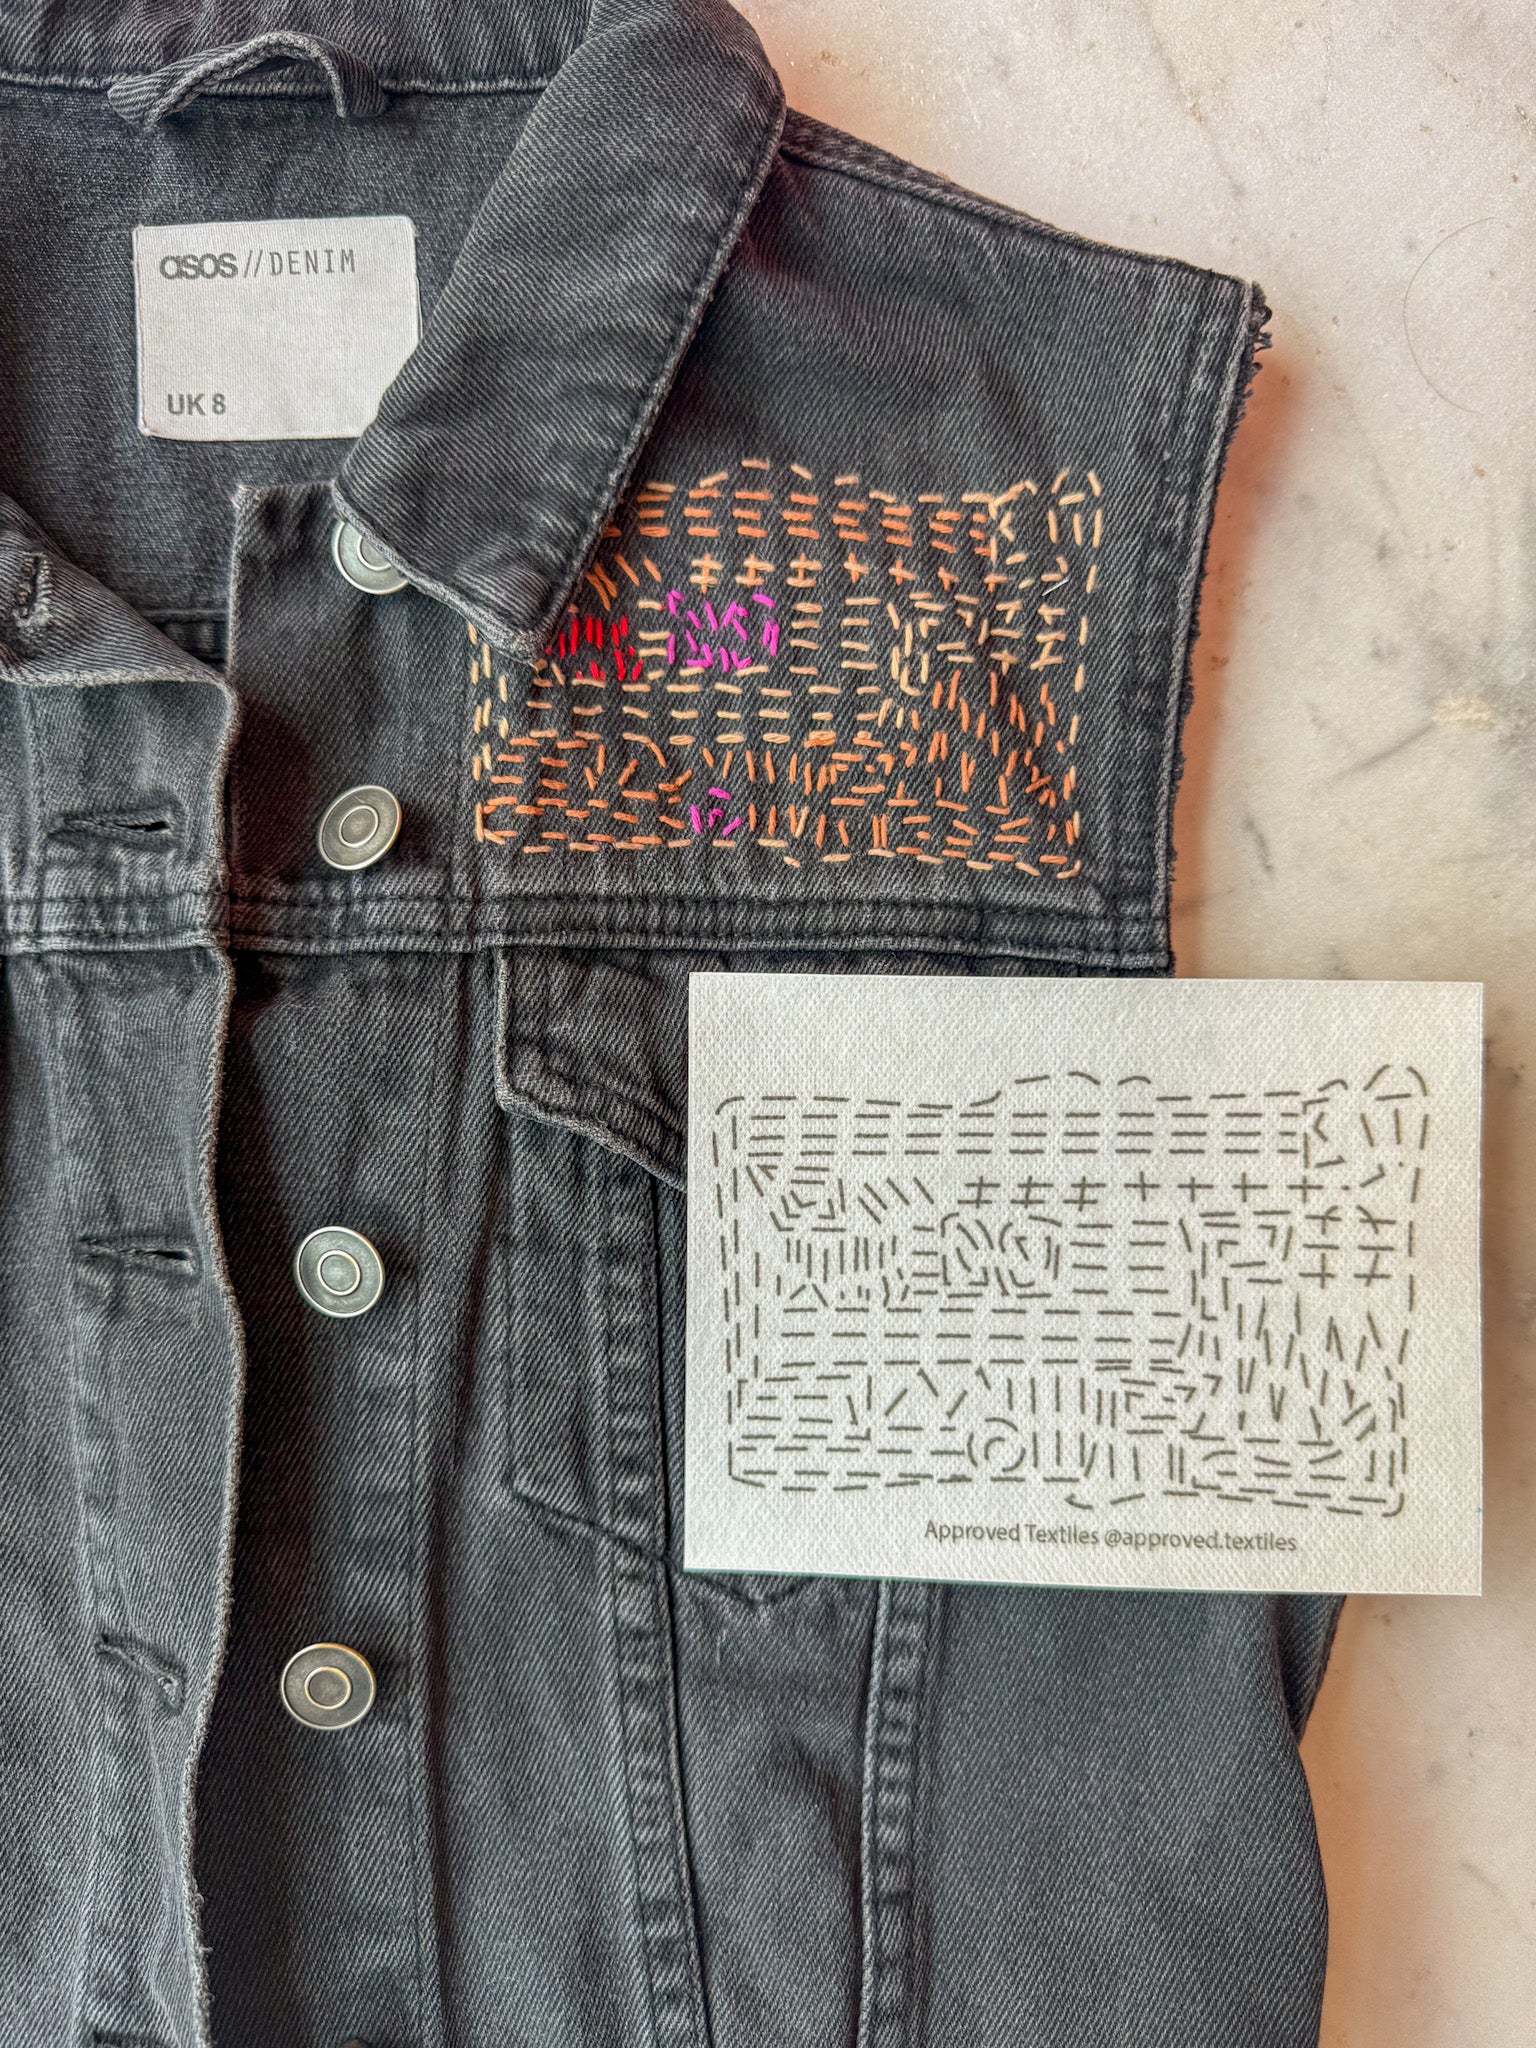 asos//DENIM
UK 8
Approved Textiles @approved.textiles